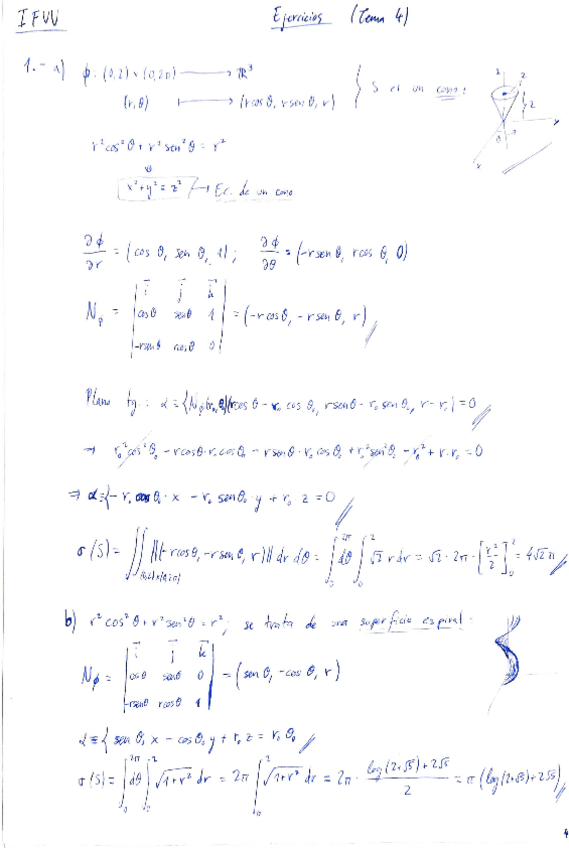 IFVV
Ejercicios (Tema 4)
1.- a) ϕ: (0,2) × (0,2π) ⟶ ℝ³
(r,θ) ⟼ (r cos θ, r sen θ, r)
S es un cono:
r² cos² θ + r² sen² θ = r²
x² + y² = z² → Ec. de un cono
∂ϕ/∂r = (cos θ, sen θ, 1); ∂ϕ/∂θ = (-r sen θ, r cos θ, 0)
N_ϕ = | i j k ; cos θ sen θ 1 ; -r sen θ r cos θ 0 | = (-r cos θ, -r sen θ, r)
Plano tg.: α ≡ r cos θ - r₀ cos θ₀, r sen θ - r₀ sen θ₀, r - r₀ = 0
→ r₀² cos² θ₀ - r cos θ · r₀ cos θ₀ - r sen θ · r₀ sen θ₀ + r₀² sen² θ₀ - r₀² + r · r₀ = 0
⇒ α ≡ { - r₀ cos θ₀ · x - r₀ sen θ₀ · y + r₀ z = 0
σ(S) = ∬ ||(-r cos θ, -r sen θ, r)|| dr dθ = ∫₀^2π dθ ∫₀² √2 r dr = √2 · 2π · [r²/2]₀² = 4√2 π
b) r² cos² θ + r² sen² θ = r²; se trata de una superficie espiral:
N_ϕ = | i j k ; cos θ sen θ 0 ; -r sen θ r cos θ 1 | = (sen θ, -cos θ, r)
α ≡ { sen θ₀ x - cos θ₀ y + r₀ z = r₀ θ₀
σ(S) = ∫₀^2π dθ ∫₀² √(1+r²) dr = 2π ∫₀² √(1+r²) dr = 2π · (log(2+√5) + 2√5)/2 = π (log(2+√5) + 2√5)
4